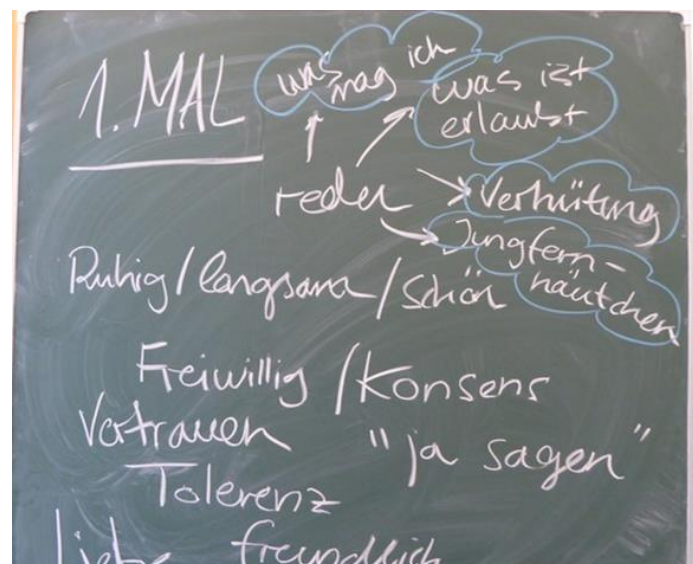 1. MAL
was mag ich
was ist
erlaubt
reden
Verhütung
Jungfern-
häutchen
Ruhig / langsam / schön
Freiwillig / Konsens
Vertrauen "ja sagen"
Tolerenz
Liebe freundlich